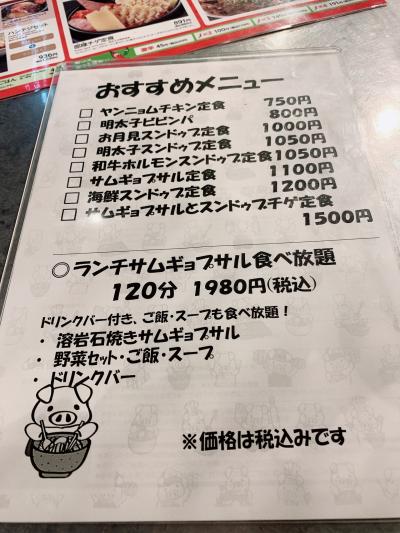 936円
891円
おすすめメニュー
□ ヤンニョムチキン定食 750円
□ 明太子ビビンパ 800円
□ お月見スンドゥブ定食 1000円
□ 明太子スンドゥブ定食 1050円
□ 和牛ホルモンスンドゥブ定食 1050円
□ サムギョプサル定食 1100円
□ 海鮮スンドゥブ定食 1200円
□ サムギョプサルとスンドゥブチゲ定食
1500円
○ ランチサムギョプサル食べ放題
120分 1980円(税込)
ドリンクバー付き、ご飯・スープも食べ放題!
・ 溶岩石焼きサムギョプサル
・ 野菜セット・ご飯・スープ
・ ドリンクバー
※価格は税込みです